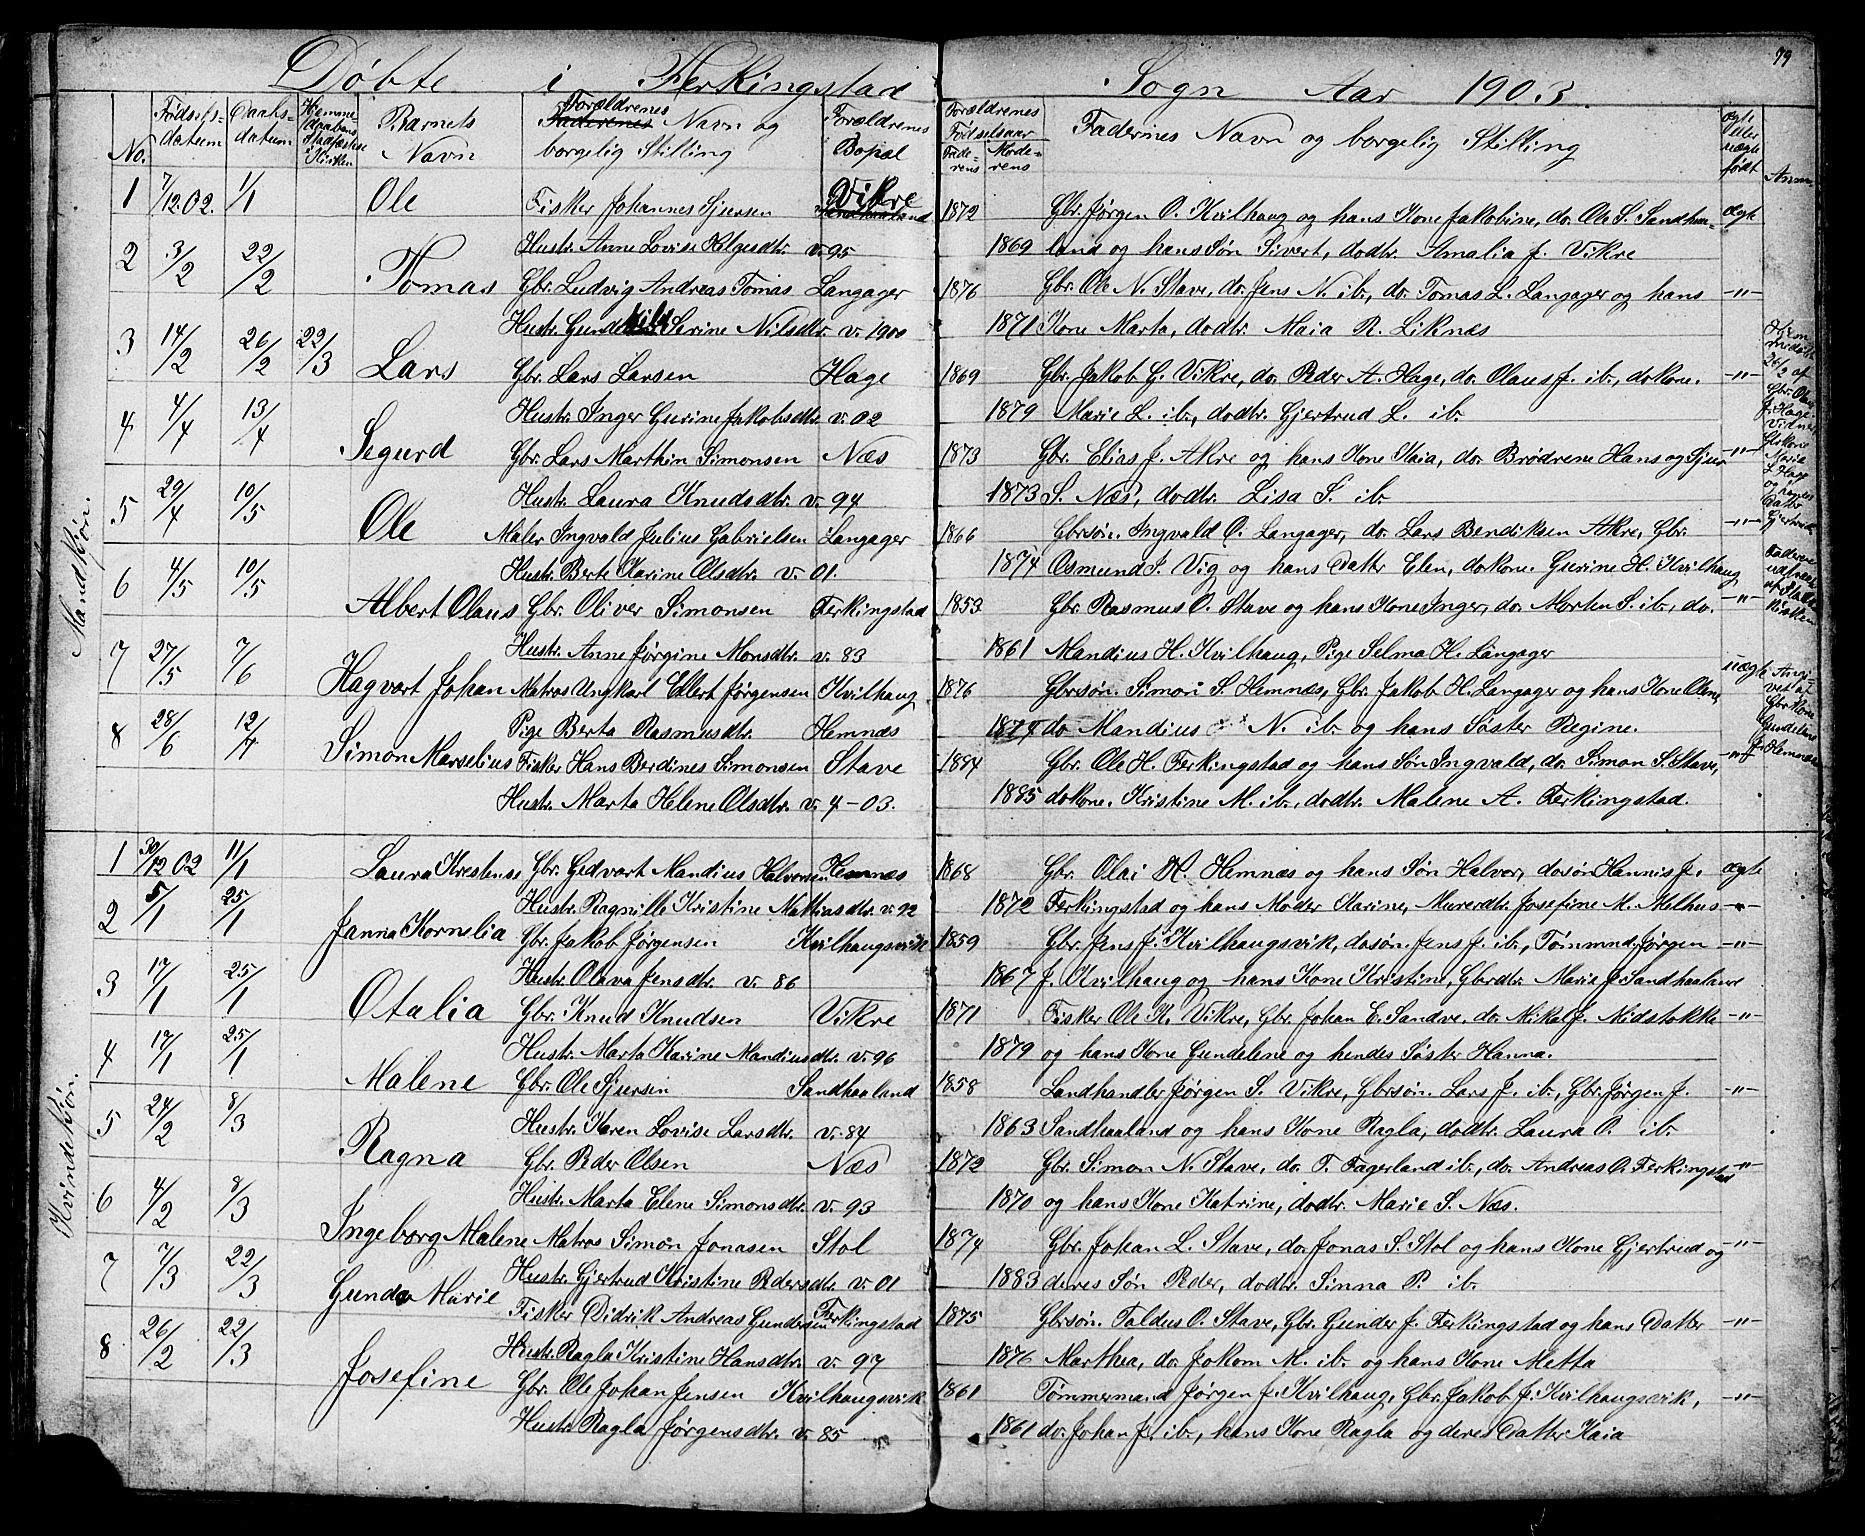 79
Døbte i Ferkingstad Sogn Aar 1903.
No. Fødsels-datum Daabs-datum Hjemme-daabens Stadfæstelse i Kirken Barnets Navn Forældrenes Faderenes Navn og borgelig Stilling Forældrenes Bopæl Forældrenes Fødselsaar Fade-rens Mode-rens Fadernes Navn og borgelig Stilling ægte eller uægte født Anm.
Mandkjøn.
1 7/12.02. 1/1 Ole Fisker Johannes Sjursen Vikre 1872 Gbr. Jørgen O. Kvilhaug og hans Kone Jakobine, do. Ole S. Sandhaa- ægte
Hustr. Anne Lovise Helgesdtr. v. 95 1869 land og hans Søn Sivert, dodtr. Amalia J. Vikre
2 3/2 22/2 Tomas Gbr. Ludvig Andreas Tomas Langager 1876 Gbr. Ole N. Stave, do. Jens N. ib., do. Tomas L. Langager og hans -"-
Hustr. Gunhild Serine Nilsdtr. v. 1900 1871 Kone Marta, dodtr. Maia R. Liknæs
3 14/2 26/2 22/3 Lars Gbr. Lars Larsen Hage 1869 Gbr. Jakob G. Vikre, do. Peder A. Hage, do. Olaus J. ib., dokone. -"-
Hustr. Inger Gurine Jakobsdtr. v. 02 1879 Marie L. ib., dodtr. Gjertrud L. ib.
Hjemmedøbt 26/2 af Gbr. Olaus J. Hage. Vidner Gbrkone Maria L. Hage og hans Datter Gjertrud
4 4/4 13/4 Segurd Gbr. Lars Marthin Simonsen Næs 1873 Gbr. Elias J. Akre og hans Kone Kaia, do. Brødrene Hans og Sjur -"-
Hustr. Laura Knudsdtr. v. 94 1873 S. Næs, dodtr. Lisa S. ib.
5 29/4 10/5 Ole Maler Ingvald Julius Gabrielsen Langager 1866 Gbrsøn. Ingvald O. Langager, do. Lars Bendiksen Akre, Gbr. -"-
Hustr. Berte Karine Olsdtr. v. 01. 1874 Osmund S. Vig og hans Datter Elen, dokone. Gurine H. Kvilhaug
Faderen udtraadt af Statskirken
6 4/5 10/5 Albert Olaus Gbr. Oliver Simonsen Ferkingstad 1853 Gbr. Rasmus O. Stave og hans Kone Inger, do. Morten S. ib., do. -"-
Hustr. Anne Jørgine Monsdtr. v. 83 1861 Mandius H. Kvilhaug, Pige Selma H. Langager
7 27/5 7/6 Hagvart Johan Matros Ungkarl Ellert Jørgensen Kvilhaug 1876 Gbrsøn. Simon S. Hemnæs, Gbr. Jakob H. Langager og hans Kone Olene, uægte
Pige Berta Rasmusdtr. Hemnæs 1874 do. Mandius N. ib. og hans Søster Regine.
Angivet af Gbrkone Gundelene J. Hemnæs
8 28/6 12/7 Simon Marselius Fisker Hans Berdines Simonsen Stave 1884 Gbr. Ole H. Ferkingstad og hans Søn Ingvald, do. Simon S. Stave, -"-
Hustr. Marta Helene Olsdtr. v. 4-03. 1885 dokone. Kristine M. ib., dodtr. Malene A. Ferkingstad.
Kvindekjøn.
1 30/12 02 11/1 Laura Krestense Gbr. Gedvart Mandius Halvorsen Hemnæs 1868 Gbr. Olai H. Hemnæs og hans Søn Halvor, dosøn Hannis J. ægte
Hustr. Ragnille Kristine Mathiasdtr. v. 92 1872 Ferkingstad og hans Moder Karine, Murerdtr. Josefine M. Melhus
2 5/1 25/1 Janna Kornelia Gbr. Jakob Jørgensen Kvilhaugsvik 1859 Gbr. Jens J. Kvilhaugsvik, dosøn. Jens J. ib., Tømmmd. Jørgen -"-
Hustr. Olava Jensdtr. v. 86 1867 J. Kvilhaug og hans Kone Kristine, Gbrdtr. Marie J. Sandhaaland
3 17/1 25/1 Otalia Gbr. Knud Knudsen Vikre 1871 Fisker Ole K. Vikre, Gbr. Johan E. Sandve, do. Mikal J. Midstokke -"-
Hustr. Marta Karine Mandiusdtr. v. 96 1879 og hans Kone Gundelene og hendes Søster Hanna.
4 17/1 25/1 Malene Gbr. Ole Sjursen Sandhaaland 1858 Landhandler Jørgen S. Vikre, Gbrsøn. Lars J. ib., Gbr. Jørgen J. -"-
Hustr. Karen Lovise Larsdtr. v. 84 1863 Sandhaaland og hans Kone Ragla, dodtr. Laura O. ib.
5 24/2 8/3 Ragna Gbr. Peder Olsen Næs 1872 Gbr. Simon N. Stave, do. T. Fagerland ib., do. Andreas O. Ferkingstad -"-
Hustr. Marta Elene Simonsdtr. v. 93 1870 og hans Kone Katrine, dodtr. Marie S. Næs.
6 4/2 8/3 Ingeborg Malene Matros Simon Jonasen Stol 1874 Gbr. Johan L. Stave, do. Jonas S. Stol og hans Kone Gjertrud og -"-
Hustr. Gjertrud Kristine Pedersdtr. v. 01 1883 deres Søn Peder, dodtr. Sinna P. ib.
7 7/3 22/3 Gunda Marie Fisker Didrik Andreas Gundersen Ferkingstad 1875 Gbrsøn. Taldus O. Stave, Gbr. Gunder J. Ferkingstad og hans Datter -"-
Hustr. Ragla Kristine Hansdtr. v. 97 1876 Marthea, do. Jokom M. ib. og hans Kone Metta
8 26/2 22/3 Josefine Gbr. Ole Johan Jensen Kvilhaugsvik 1861 Tømmermand Jørgen J. Kvilhaug, Gbr. Jakob J. Kvilhaugsvik, -"-
Hustr. Ragla Jørgensdtr. v. 85 1861 do. Johan J. ib., hans Kone Ragla og deres Datter Kaia